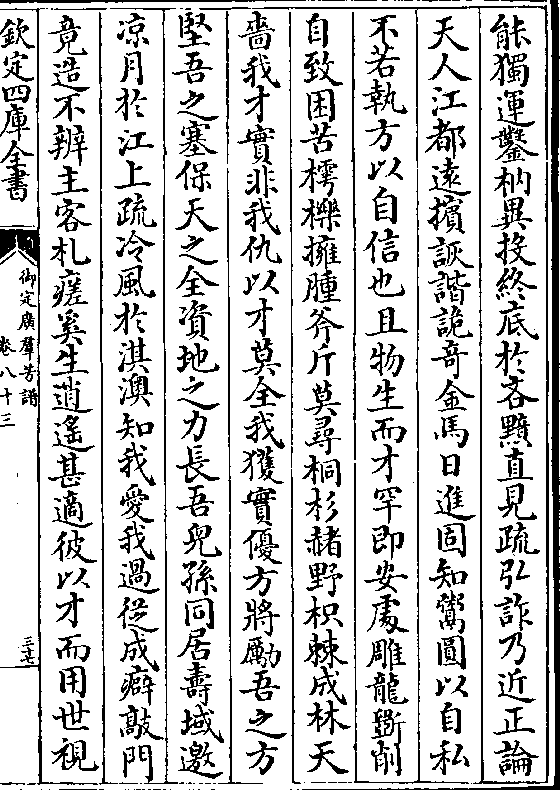 能獨運鑿枘異投終底於吝黯直見疏弘詐乃近正論
天人江都遠擯詼諧詭奇金馬日進固知鬻圓以自私
不若執方以自信也且物生而才罕即安處雕龍斲削
自致困苦樗櫟擁腫斧斤莫尋桐杉赭野枳棘成林天
嗇我才實非我仇以才莫全我獲實優方將勵吾之方
堅吾之塞保天之全資地之力長吾兒孫同居壽域邀
凉月於江上疏冷風於淇澳知我愛我過從成癖敲門
竟造不辨主客札瘥奚生逍遙甚適彼以才而用世視
欽定四庫全書
御定廣羣芳譜
卷八十三
三十七